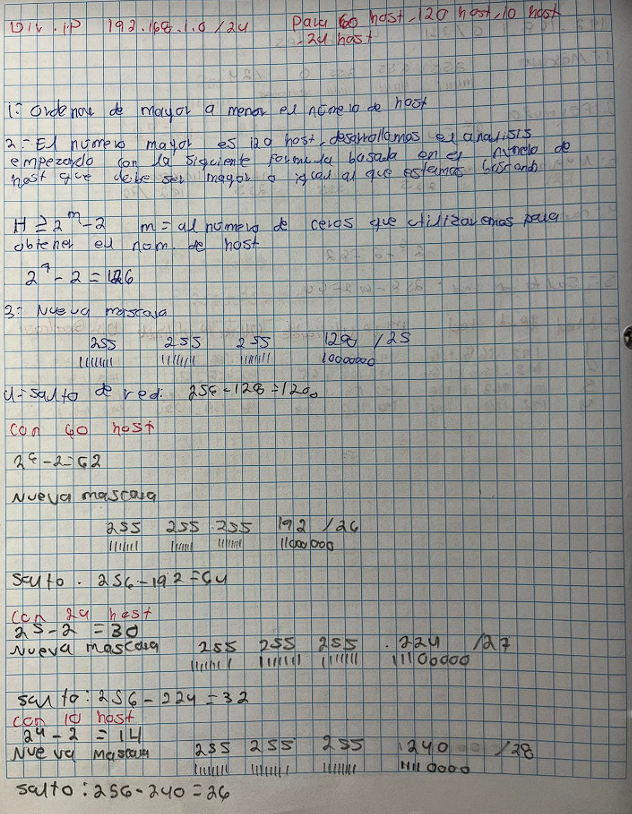 Div. IP 192.168.1.0 /24 Para 60 host, 120 host, 10 host
- 24 host
1.- Ordenar de mayor a menor el número de host
2.- El número mayor es 120 host, desarrollamos el analisis
empezando con la siguiente formula basada en el número de
host que debe ser mayor o igual al que estamos buscando
H ≥ 2^m - 2 m = al número de ceros que utilizaremos para
obtener el nom. de host
2^7 - 2 = 126
3.- Nueva mascara
255 255 255 128 /25
11111111 11111111 11111111 10000000
4.- salto de red: 256 - 128 = 128
Con 60 host
2^6 - 2 = 62
Nueva mascara
255 255 .255 192 /26
11111111 11111111 11111111 11000000
Salto . 256 - 192 = 64
Con 24 host
2^5 - 2 = 30
Nueva mascara 255 255 255 .224 /27
11111111 11111111 11111111 11100000
salto : 256 - 224 = 32
Con 10 host
2^4 - 2 = 14
Nueva mascara 255 255 255 240 /28
11111111 11111111 11111111 11110000
salto : 256 - 240 = 26